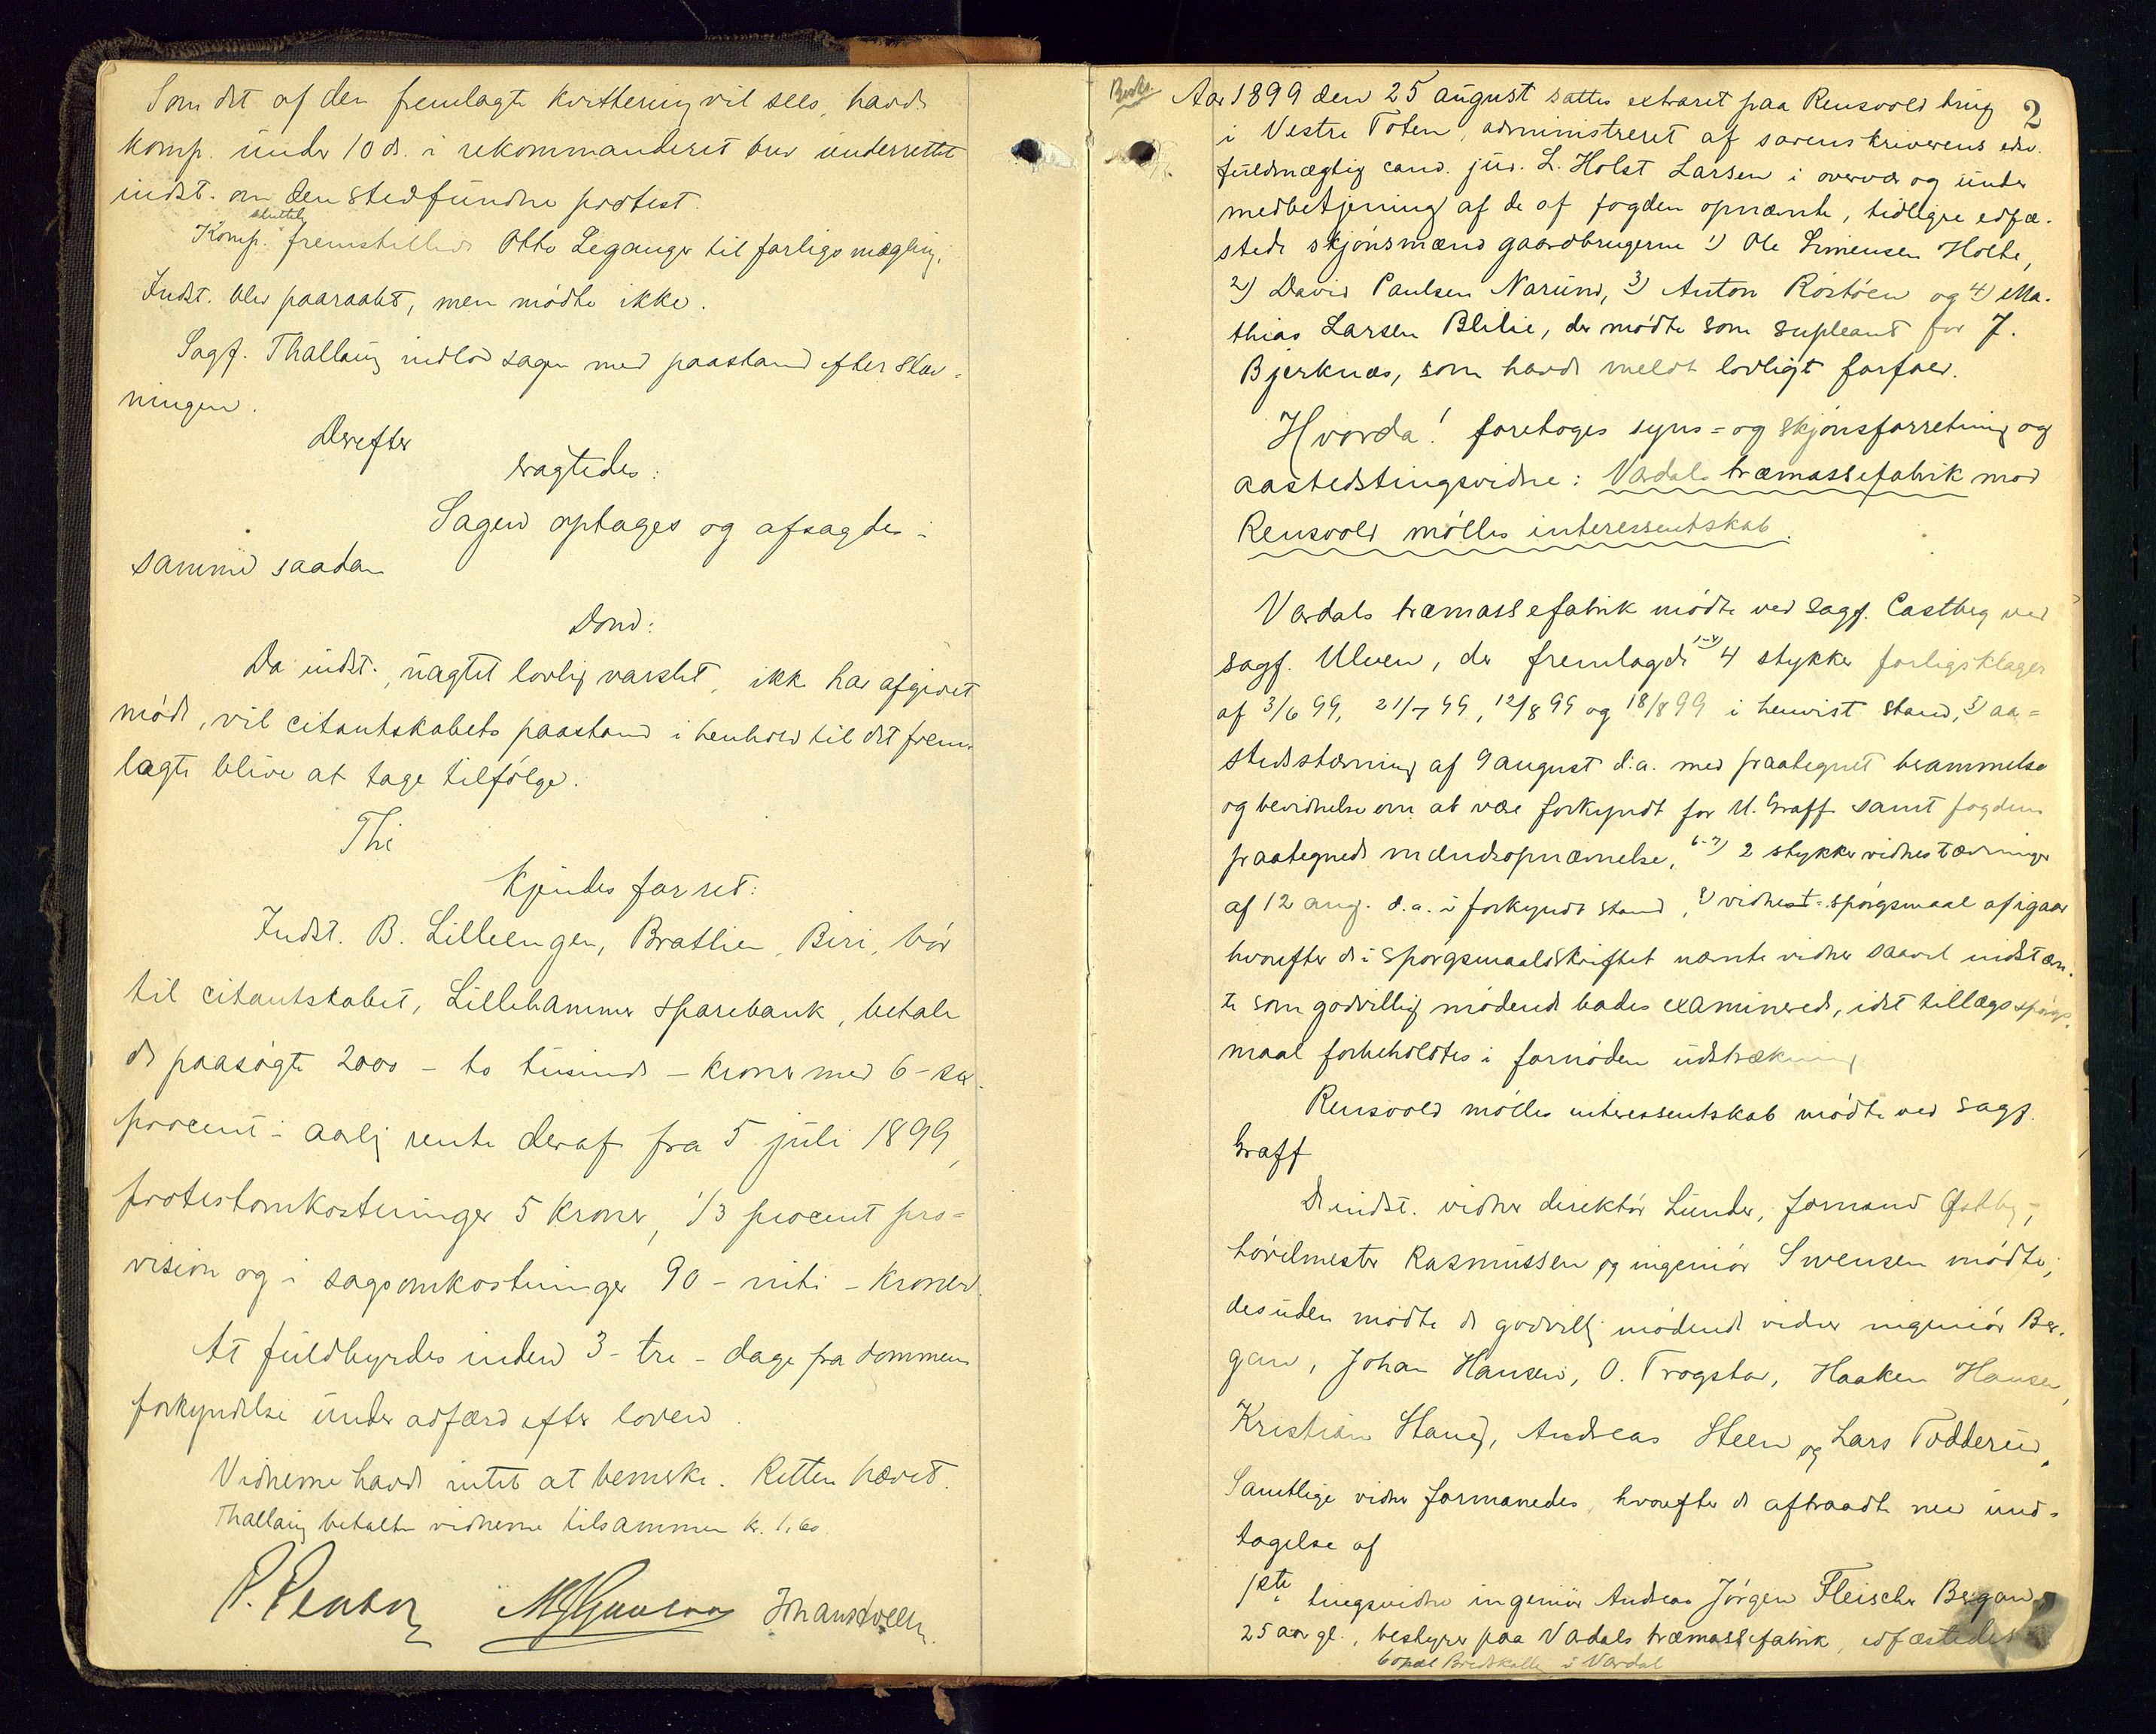 Som det af den fremlagte kvittering vil sees, havde
komp. under 10 ds. i rekommanderet brev underrettet
indst. om den stedfundne protest.
Komp. fremstilledes Otto Leganger til forligsmægling.
Indst. blev paaraabt, men mødte ikke.
Sagf. Thallaug indlod sagen med paastand efter stæv-
ningen.
Derefter
eragtedes:
Sagen optages og afsagdes i
samme saadan
Dom:
Da indst., uagtet lovlig varslet, ikke har afgivet
møde, vil citantskabets paastand i henhold til det frem-
lagte blive at tage tilfølge.
Thi
Kjendes for ret:
Indst. B. Lilleengen, Bratlien, Biri, bør
til citantskabet, Lillehammer sparebank, betale
de paasøgte 2000 - to tusinde - kroner med 6 - sex
procent - aarlig rente deraf fra 5 juli 1899,
protestomkostninger 5 kroner, 1/3 procent pro-
vision og i sagsomkostninger 90 - niti - kroner.
At fuldbyrdes inden 3 - tre - dage fra dommens
forkyndelse under adfærd efter loven.
Vidnerne havde intet at bemerke. Retten hævet.
Thallaug betalte vidnerne tilsammen kr. 1,60.
2
Aar 1899 den 25 august sattes extraret paa Rensvold brug
i Vestre Toten, administreret af sorenskriverens edsv.
fuldmægtig cand. jur. L. Holst Larsen i overvær og under
medbetjening af de af fogden opnævnte, tidligere edfæ-
stede skjønsmænd gaardbrugerne 1) Ole Simensen Holte,
2) David Paulsen Narum, 3) Anton Røstøen og 4) Ma-
thias Larsen Blilie, der mødte som supleant for J.
Bjerknæs, som havde meldt lovligt forfald.
Hvorda! foretoges syns- og skjønsforretning og
aastedstingsvidne: Vardals træmassefabrik mod
Rensvold mølles interessentskab.
Vardals træmassefabrik mødte ved sagf. Castberg ved
sagf. Ulven, der fremlagde 1-4) 4 stykker forligsklager
af 3/6 99, 21/7 99, 12/8 99 og 18/8 99 i henvist stand, 5) aa-
stedsstævning af 9 august d.a. med paategnet berammelse
og bevidnelse om at være forkyndt for U. Graff samt fogdens
paategnede mændsopnævnelse, 6-7) 2 stykker vidnestævninger
af 12 aug. d.a. i forkyndt stand, 8) vidnespørgsmaal af igaar
hvorefter de i spørgsmaalsskriftet nævnte vidner saavel indstævn-
te som godvillig mødende bades examinerede, idet tillægsspørgs-
maal forbeholdtes i fornøden udstrækning.
Rensvold mølles interessentskab mødte ved sagf.
Graff
De indst. vidner direktør Lunder, formand Østby,
høvelmester Rasmussen og ingeniør Svensen mødte;
desuden mødte de godvillig mødende vidner ingeniør Ber-
gan, Johan Hansen, O. Trogstad, Haaken Hansen,
Kristian Haug, Andreas Steen og Lars Todderud.
Samtlige vidner formanedes, hvorefter de aftraadte med und-
tagelse af
1ste tingsvidne ingeniør Andreas Jørgen Fleischer Bergan
25 aar gl., bestyrer paa Vardals træmassefabrik, edfæstedes
bopæl Bredskallen i Vardal